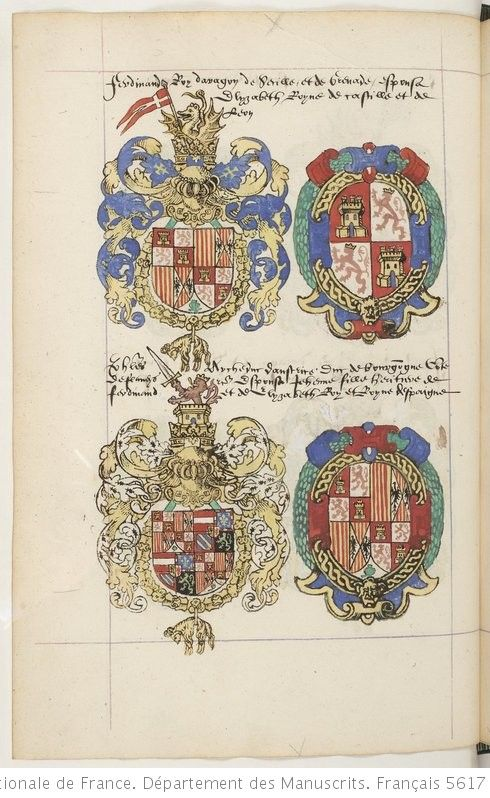 Ferdinand Roy daragon de Secille et de Grenade, espousa
Elyzabeth Royne de castille et de
Leon
Archeduc daustrice Duc de bourgongne
espousa Jehenne fille heritiere de
ferdinand et de Elyzabeth Roy et Royne despaigne
tionale de France. Département des Manuscrits. Français 5617